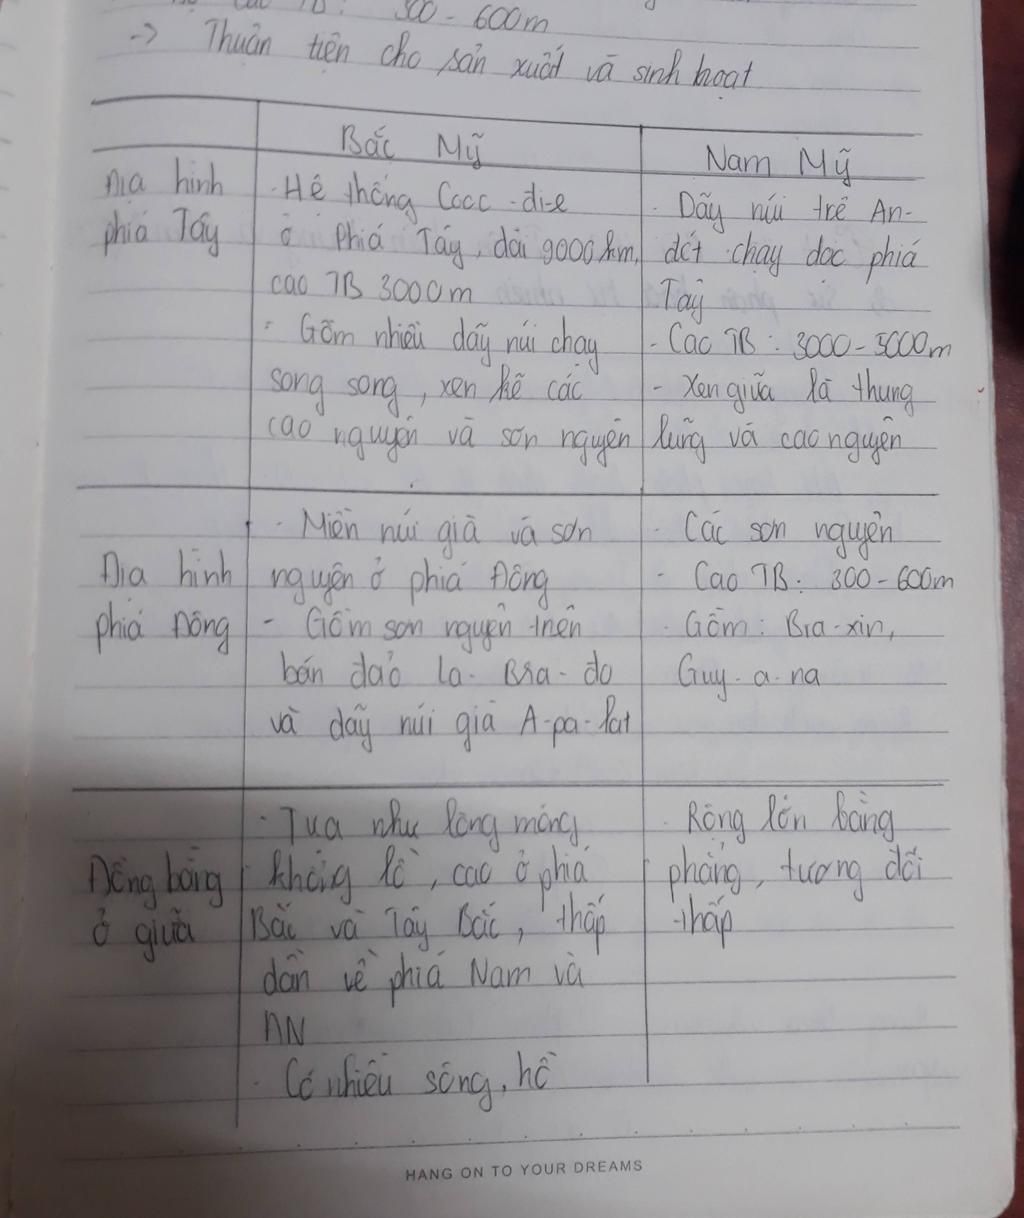 300 - 600m
-> Thuận tiện cho sản xuất và sinh hoạt
Bắc Mỹ
Nam Mỹ
Địa hình
phía Tây
- Hệ thống Cooc-đi-e
ở phía Tây, dài 9000km,
cao TB 3000m
- Gồm nhiều dãy núi chạy
song song, xen kẽ các
cao nguyên và sơn nguyên
- Dãy núi trẻ An-
đét chạy dọc phía
Tây
- Cao TB : 3000-5000m
- Xen giữa là thung
lũng và cao nguyên
Địa hình
phía Đông
- Miền núi già và sơn
nguyên ở phía Đông
- Gồm sơn nguyên trên
bán đảo La-Bra-do
và dãy núi già A-pa-lat
- Các sơn nguyên
- Cao TB: 300-600m
- Gồm: Bra-xin,
Guy-a-na
Đồng bằng
ở giữa
- Tựa như lòng máng
khổng lồ, cao ở phía
Bắc và Tây Bắc, thấp
dần về phía Nam và
ĐN
- Có nhiều sông, hồ
- Rộng lớn bằng
phẳng, tương đối
thấp
HANG ON TO YOUR DREAMS